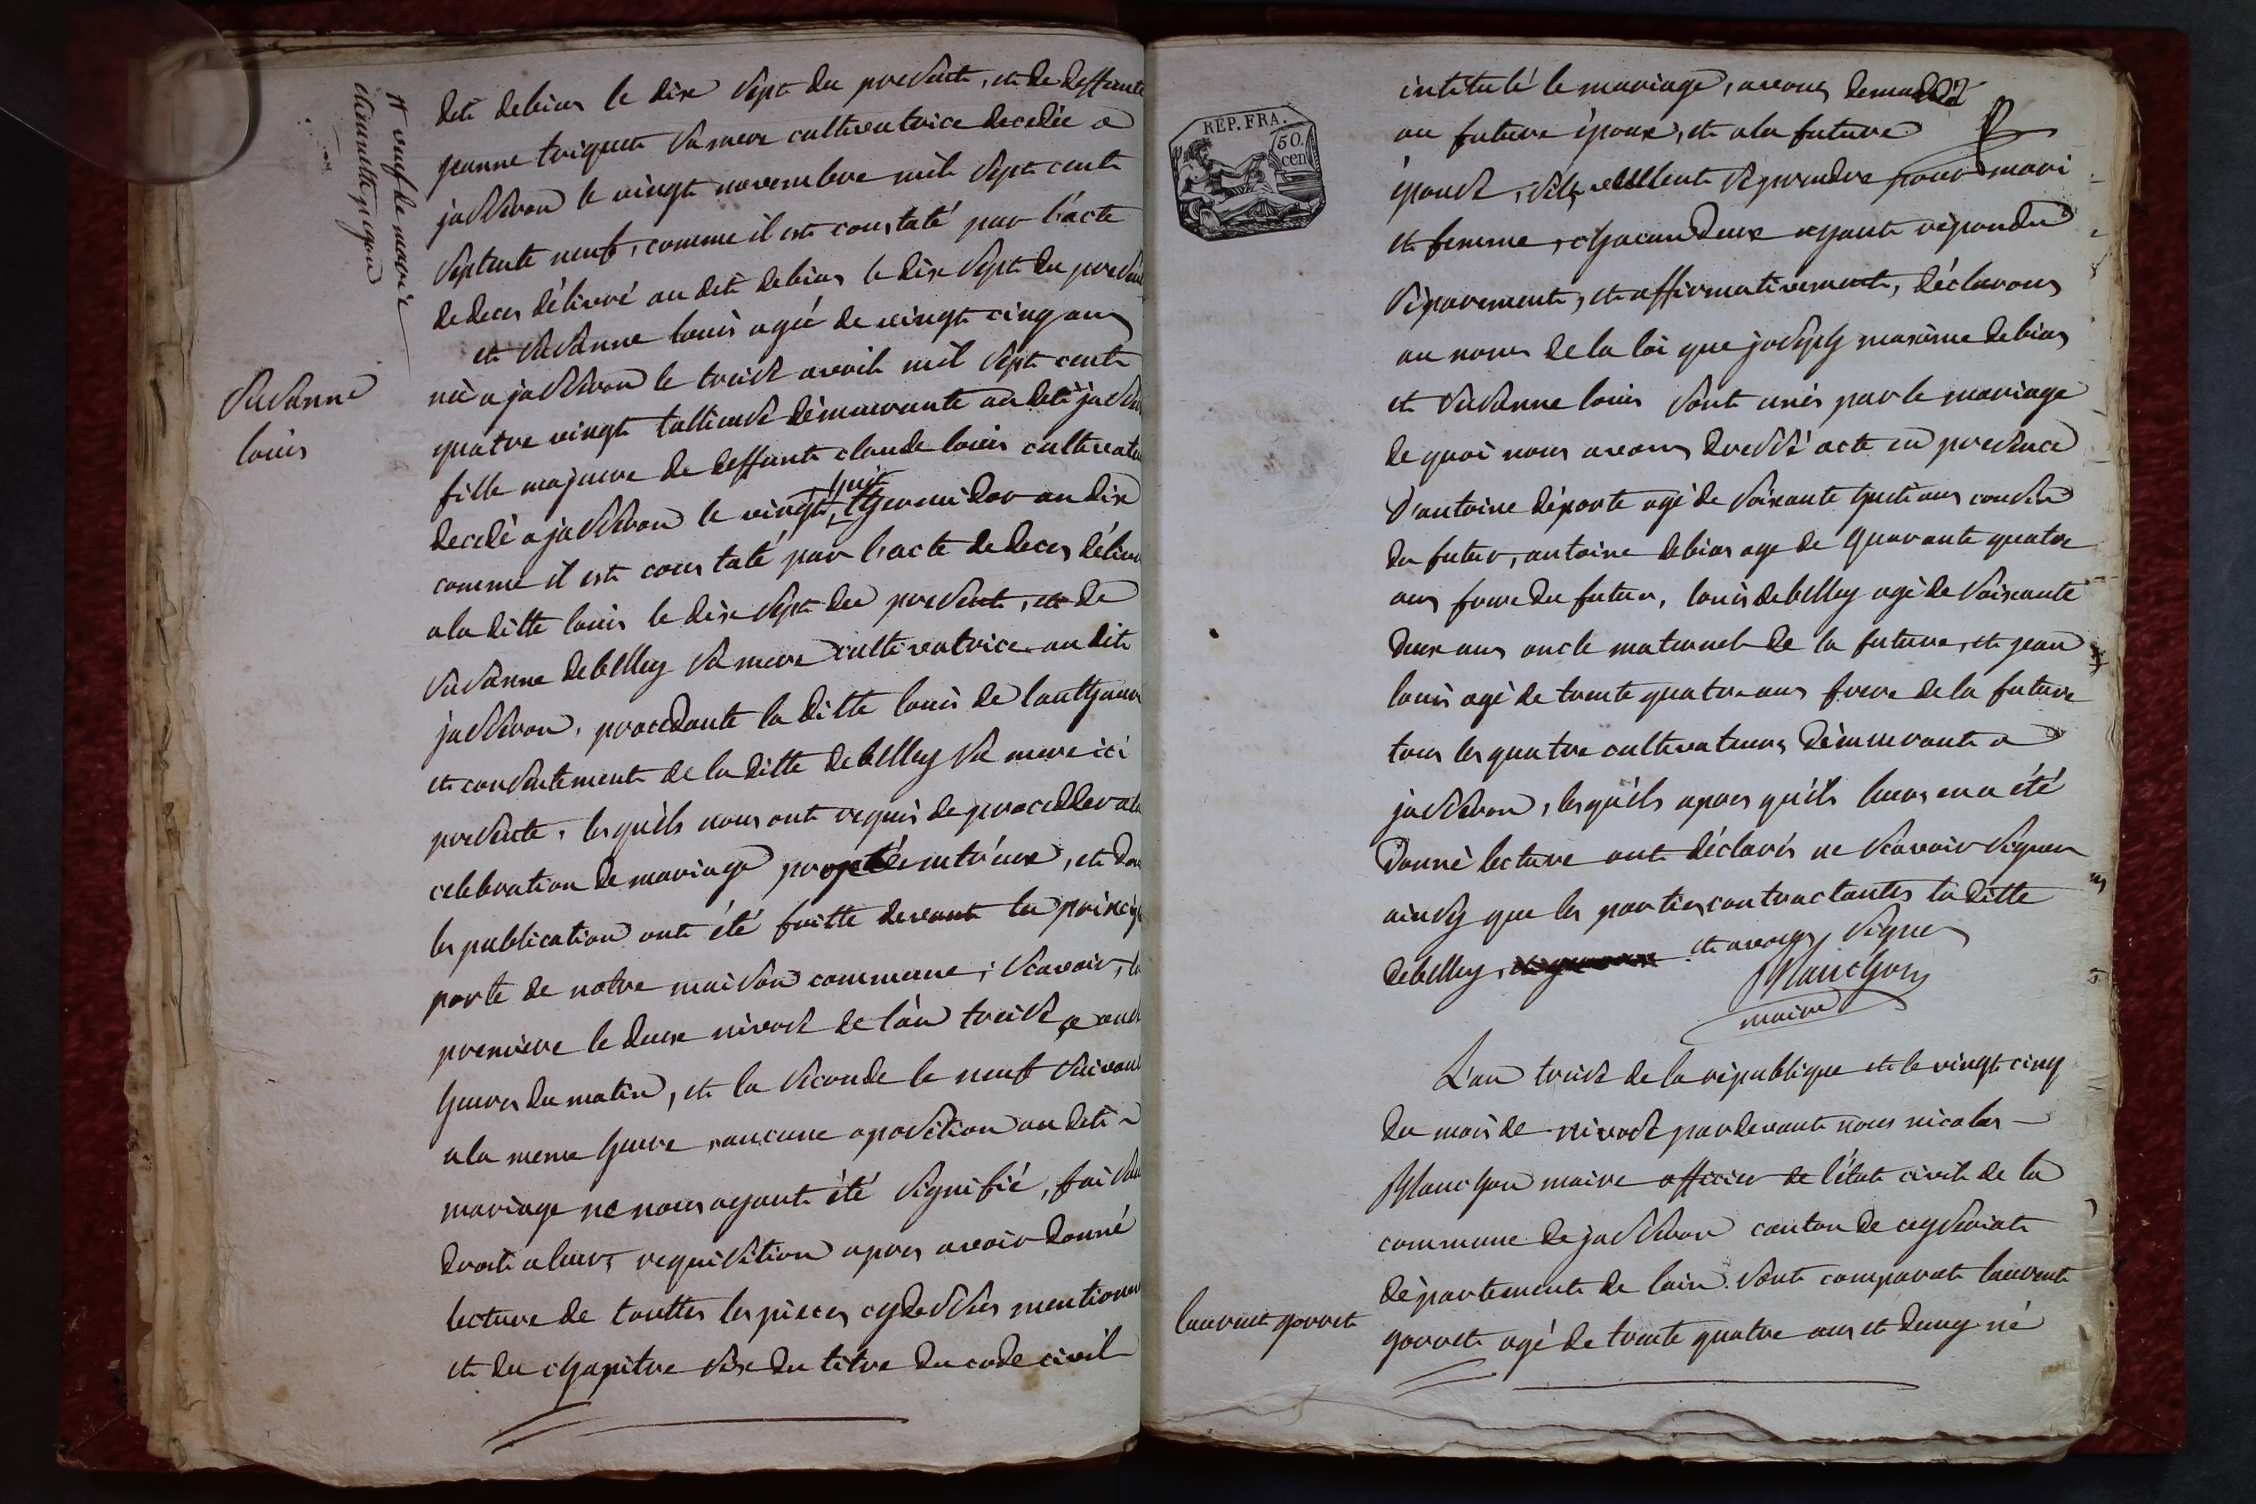 # veuf de marie
thienette pigon
Susanne
louis
dit debias le dix sept du present, et de deffunte
jeanne triquet sa mere cultivatrice decedée a
jasseron le vingt novembre mil sept cent
septente neuf, comme il est constaté par l'acte
de deces délivré au dit debias le dix sept du present
et susanne louis agée de vingt cinq ans
née a jasseron le treise avril mil sept cent
quatre vingt demeurante au dit jasseron
fille majeure de deffunt claude louis cultivateur
decedé a jasseron le vingt huit thermidor an dix
comme il est constaté par l'acte de deces délivré
a la ditte louis le dix sept du present, et de
susanne debelley sa mere cultivatrice au dit
jasseron, procedante la ditte louis de l'authorité
et consentement de la ditte debelley sa mere ici
presente, lesquels nous ont requis de procedder a la
celebration de mariage projetté entr'eux, et dont
les publication ont été faitte devant la principale
porte de notre maison commune; scavoir, la
premiere le deux nivose de l'an treise a onze
heures du matin, et la seconde le neuf suivant
a la meme heure, aucune oposition au dit
mariage ne nous ayant été signifié, faisant
droit a leurs requisition apres avoir donné
lecture de touttes les pieces cy dessus mentionnées
et du chapitre six du titre du code civil
REP. FRA.
50.
cen
intitulé le mariage, avons demandé
au future époux, et a la future
épouse, s'ils veullent se prendre pour mari
et femme, chacun deux ayant répondu
séparement, et affirmativement, déclarons
au nom de la loi que joseph marie debias
et susanne louis sont unis par le mariage
de quoi nous avons dressé acte en presence
d'antoine déporte agé de soixante huit ans cousin
du futur, antoine debias age de quarante quatre
ans frere du futur, louis debelley agé de soixante
deux ans oncle maternel de la future, et jean
louis agé de trente quatre ans frere de la future
tous les quatre cultivateurs demeurant a
jasseron, lesquels apres qu'ils leurs en a été
donné lecture ont déclarés ne scavoir signer
ainsy que les parties contractantes la ditte
debelley, et avons signer
Blanchon
maire
L'an treise de la république et le vingt cinq
du mois de nivose pardevant nous nicolas
Blanchon maire officier de l'état civil de la
commune de jasseron canton de ceyseriat
département de lain sont comparut laurent
gorret agé de trente quatre ans et demy né
laurent gorret